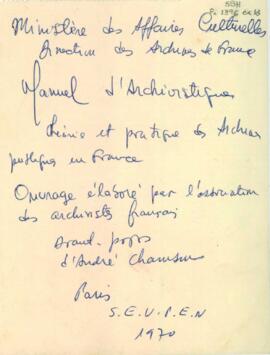 SBH
Ministère des Affaires Culturelles
Direction des Archives de France
Manuel d'Archivistique
Théorie et pratique des Archives
publiques en France
Ouvrage élaboré par l'association
des archivistes français
Avant-propos
d'André Chamson
Paris
S.E.V.P.E.N
1970